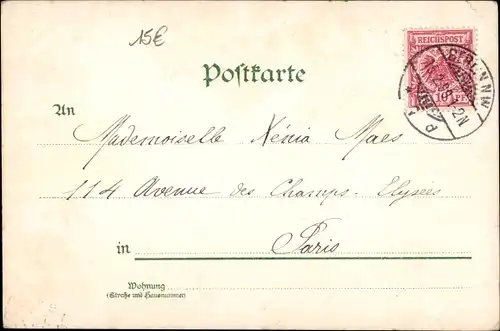 15€
REICHSPOST
10 PF
BERLIN NW
Postkarte
An
Mademoiselle Xénia Maes
114 Avenue des Champs-Elysées
in Paris
Wohnung
(Straße und Hausnummer)